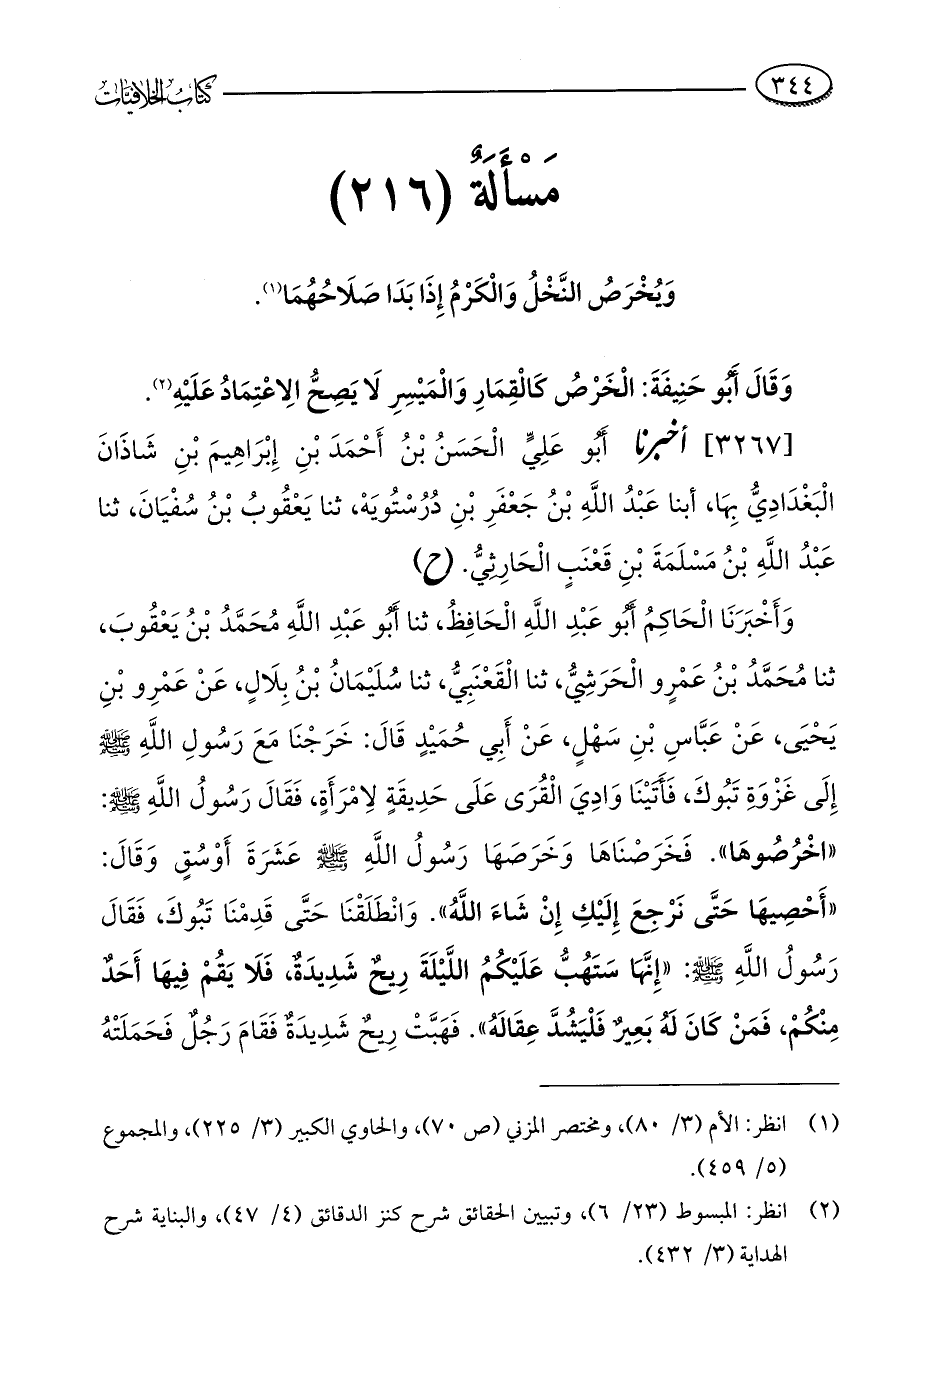 ٣٤٤ كتاب الخلافيات
مَسْأَلَةٌ (٢١٦)
وَيُخْرَصُ النَّخْلُ وَالْكَرْمُ إِذَا بَدَا صَلَاحُهُمَا(١).
وَقَالَ أَبُو حَنِيفَةَ: الْخَرْصُ كَالْقِمَارِ وَالْمَيْسِرِ لَا يَصِحُّ الِاعْتِمَادُ عَلَيْهِ(٢).
[٣٢٦٧] أخبرنا أَبُو عَلِيٍّ الْحَسَنُ بْنُ أَحْمَدَ بْنِ إِبْرَاهِيمَ بْنِ شَاذَانَ
الْبَغْدَادِيُّ بِهَا، أبنا عَبْدُ اللَّهِ بْنُ جَعْفَرِ بْنِ دُرُسْتُويَهْ، ثنا يَعْقُوبُ بْنُ سُفْيَانَ، ثنا
عَبْدُ اللَّهِ بْنُ مَسْلَمَةَ بْنِ قَعْنَبٍ الْحَارِثِيُّ. (ح)
وَأَخْبَرَنَا الْحَاكِمُ أَبُو عَبْدِ اللَّهِ الْحَافِظُ، ثنا أَبُو عَبْدِ اللَّهِ مُحَمَّدُ بْنُ يَعْقُوبَ،
ثنا مُحَمَّدُ بْنُ عَمْرٍو الْحَرَشِيُّ، ثنا الْقَعْنَبِيُّ، ثنا سُلَيْمَانُ بْنُ بِلَالٍ، عَنْ عَمْرِو بْنِ
يَحْيَى، عَنْ عَبَّاسِ بْنِ سَهْلٍ، عَنْ أَبِي حُمَيْدٍ قَالَ: خَرَجْنَا مَعَ رَسُولِ اللَّهِ ﷺ
إِلَى غَزْوَةِ تَبُوكَ، فَأَتَيْنَا وَادِيَ الْقُرَى عَلَى حَدِيقَةٍ لِامْرَأَةٍ، فَقَالَ رَسُولُ اللَّهِ ﷺ:
«اخْرُصُوهَا». فَخَرَصْنَاهَا وَخَرَصَهَا رَسُولُ اللَّهِ ﷺ عَشَرَةَ أَوْسُقٍ وَقَالَ:
«أَحْصِيهَا حَتَّى نَرْجِعَ إِلَيْكِ إِنْ شَاءَ اللَّهُ». وَانْطَلَقْنَا حَتَّى قَدِمْنَا تَبُوكَ، فَقَالَ
رَسُولُ اللَّهِ ﷺ: «إِنَّهَا سَتَهُبُّ عَلَيْكُمُ اللَّيْلَةَ رِيحٌ شَدِيدَةٌ، فَلَا يَقُمْ فِيهَا أَحَدٌ
مِنْكُمْ، فَمَنْ كَانَ لَهُ بَعِيرٌ فَلْيَشُدَّ عِقَالَهُ». فَهَبَّتْ رِيحٌ شَدِيدَةٌ فَقَامَ رَجُلٌ فَحَمَلَتْهُ
(١) انظر: الأم (٣/ ٨٠)، ومختصر المزني (ص ٧٠)، والحاوي الكبير (٣/ ٢٢٥)، والمجموع
(٥/ ٤٥٩).
(٢) انظر: المبسوط (٢٣/ ٦)، وتبيين الحقائق شرح كنز الدقائق (٤/ ٤٧)، والبناية شرح
الهداية (٣/ ٤٣٢).